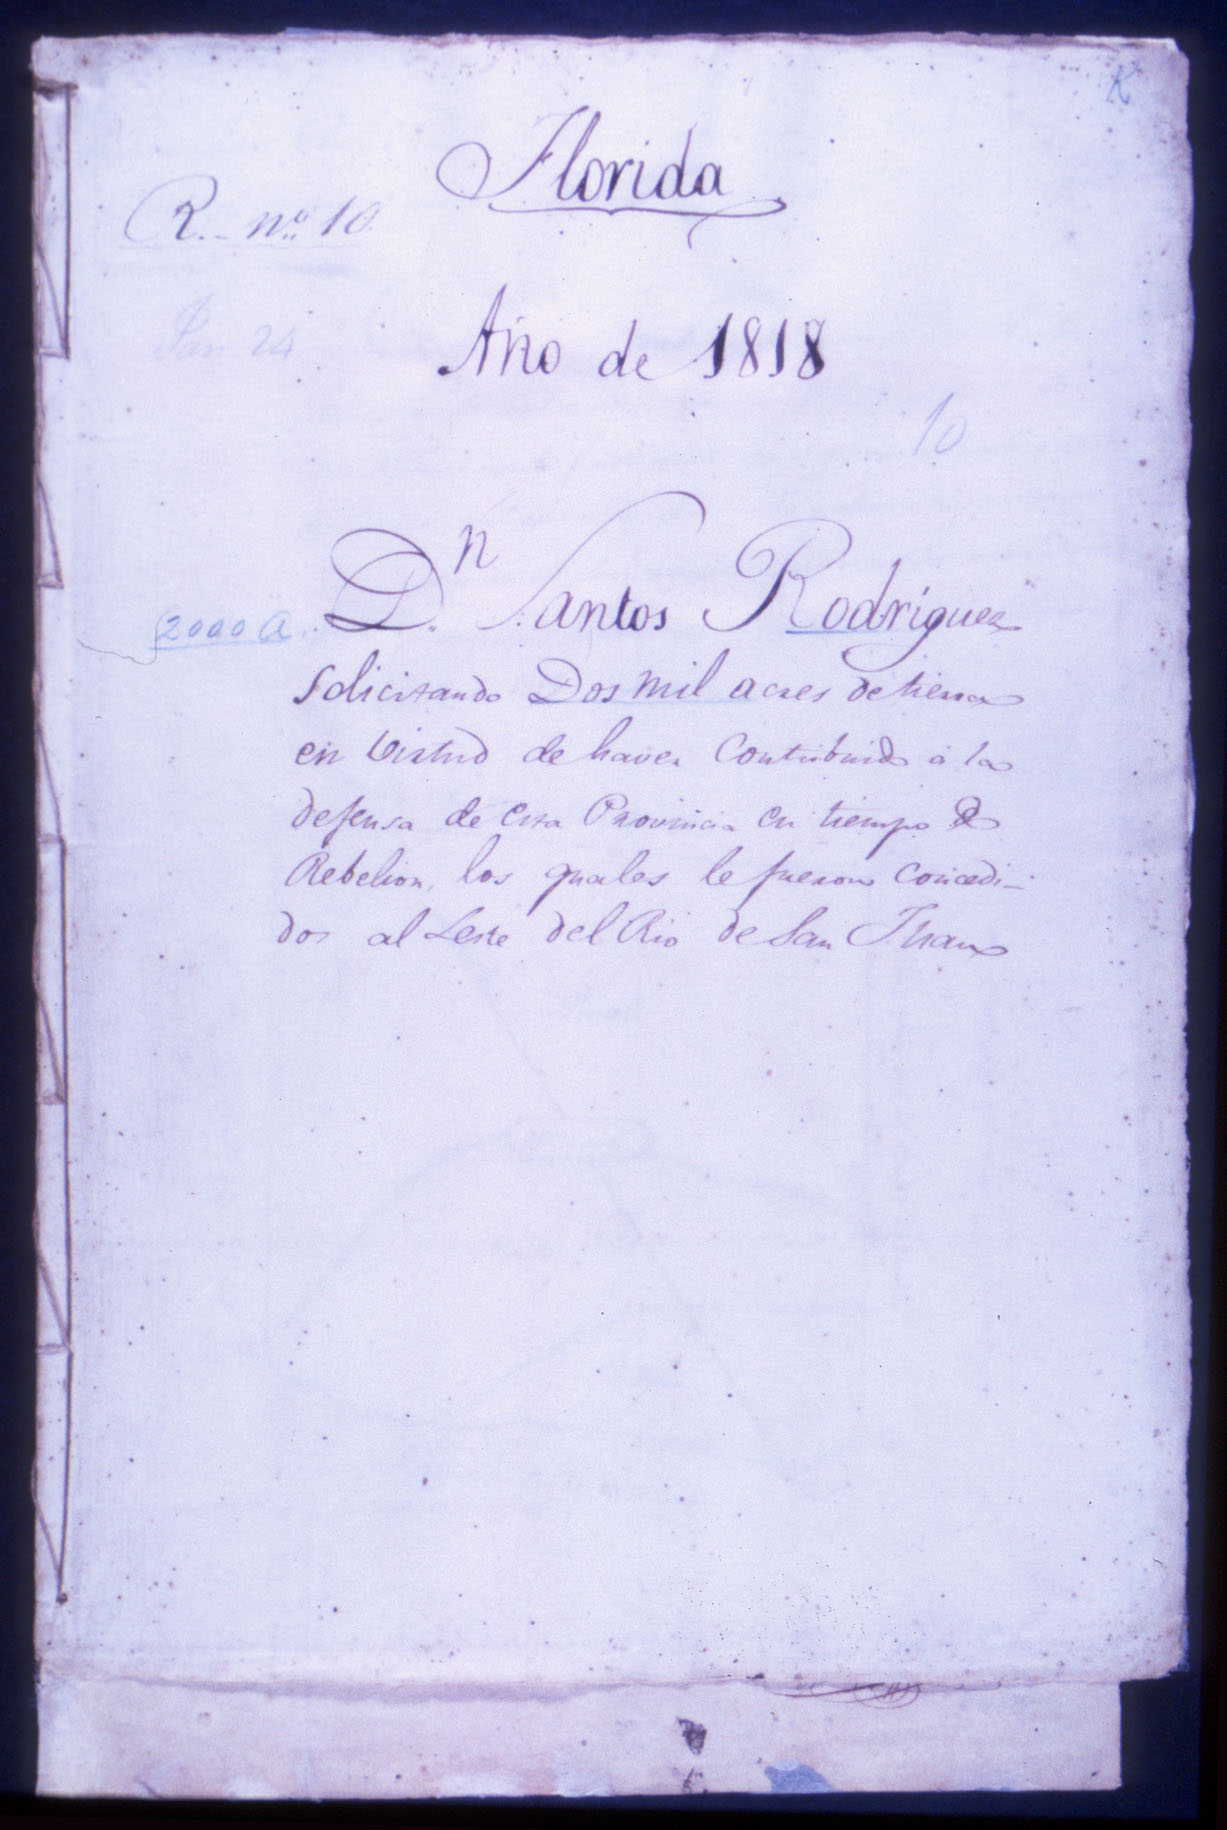 K
Florida
R. nº 10.
Año de 1818
10
Dn Santos Rodriguez
2000 a.
solicitando Dos mil acres de tierra
en virtud de haver contribuido á la
defensa de esta Provincia en tiempo de
Rebelion, los quales le fueron concedi-
dos al Leste del Rio de San Juan